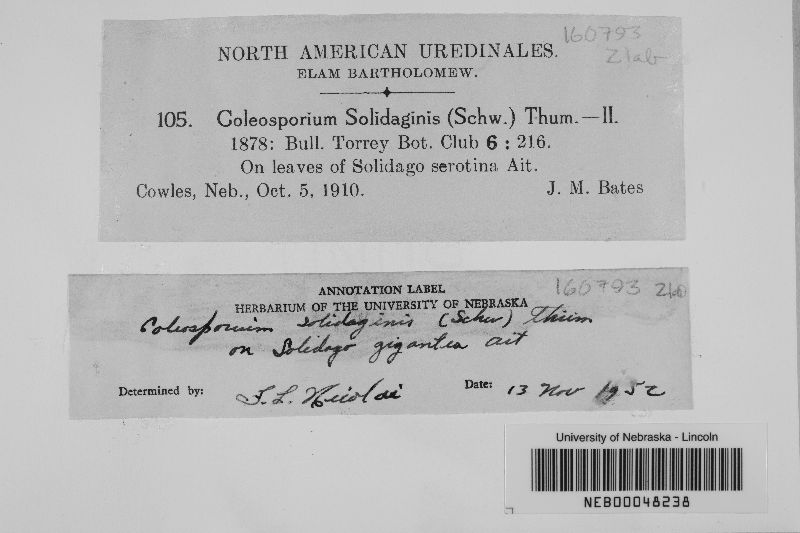 160793
Zlab
NORTH AMERICAN UREDINALES.
ELAM BARTHOLOMEW.
105. Coleosporium Solidaginis (Schw.) Thum.—II.
1878: Bull. Torrey Bot. Club 6 : 216.
On leaves of Solidago serotina Ait.
Cowles, Neb., Oct. 5, 1910. J. M. Bates
160793 Zlab
ANNOTATION LABEL
HERBARIUM OF THE UNIVERSITY OF NEBRASKA
Coleosporium Solidaginis (Schw) Thüm
on Solidago gigantea ait
Determined by: F. L. Nicolai Date: 13 Nov 1952
University of Nebraska - Lincoln
NEB00048238